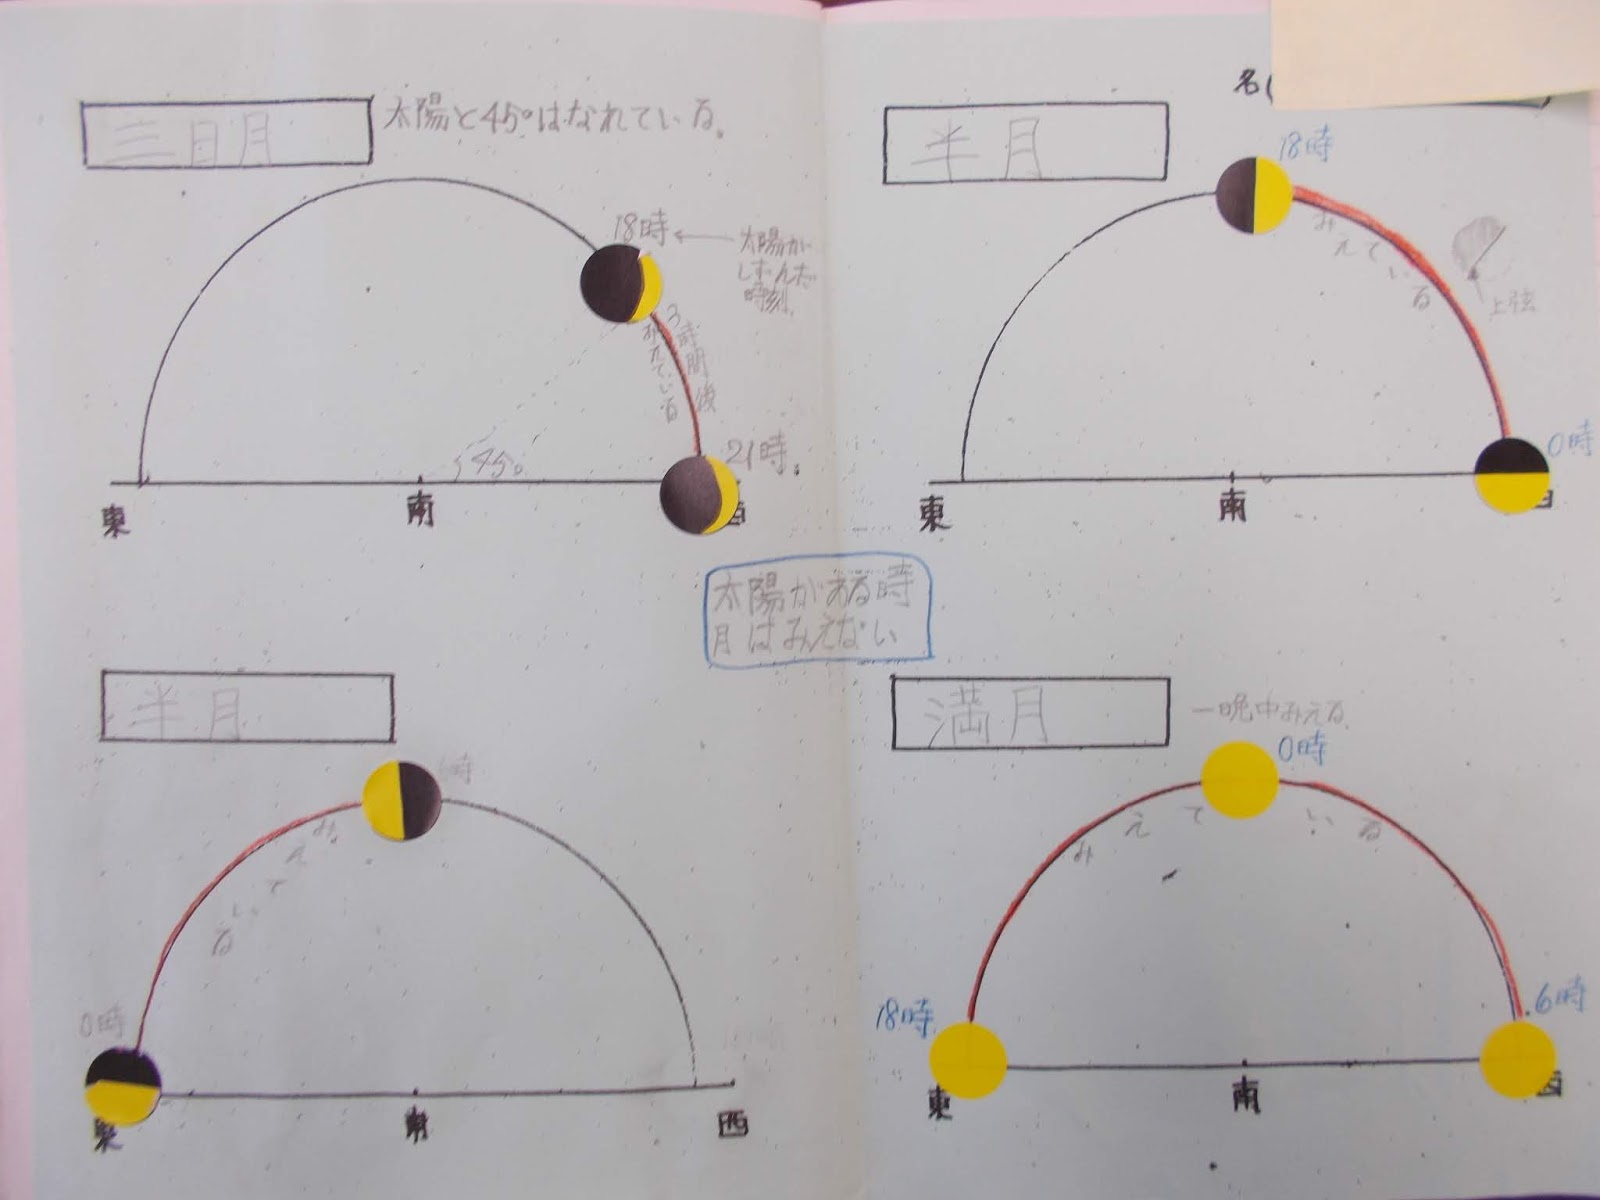 三日月
太陽と45°はなれている。
18時
太陽が
しずんだ
時刻
3時間後
みえている
45°
21時.
東
南
西
名(
半月
18時
みえている
上弦
0時
東
南
太陽がある時
月はみえない
半月
時
みえている
0時
東
南
西
満月
一晩中みえる
0時
みえている
18時
6時
東
南
西